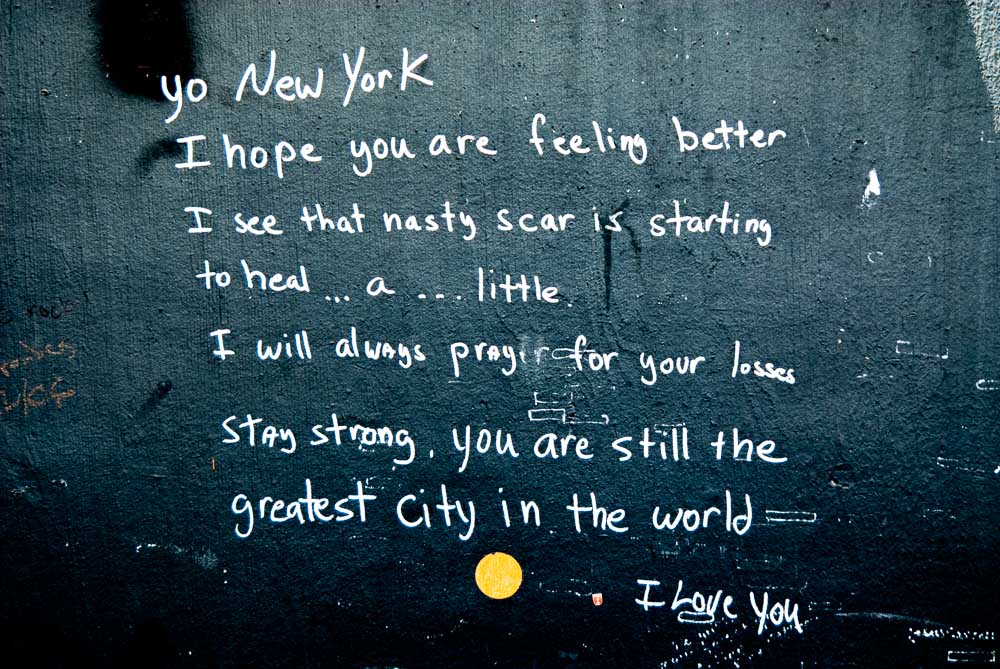 yo New York
I hope you are feeling better
I see that nasty scar is starting
to heal ... a ... little.
I will always pray for your losses
stay strong, you are still the
greatest city in the world
I Love You